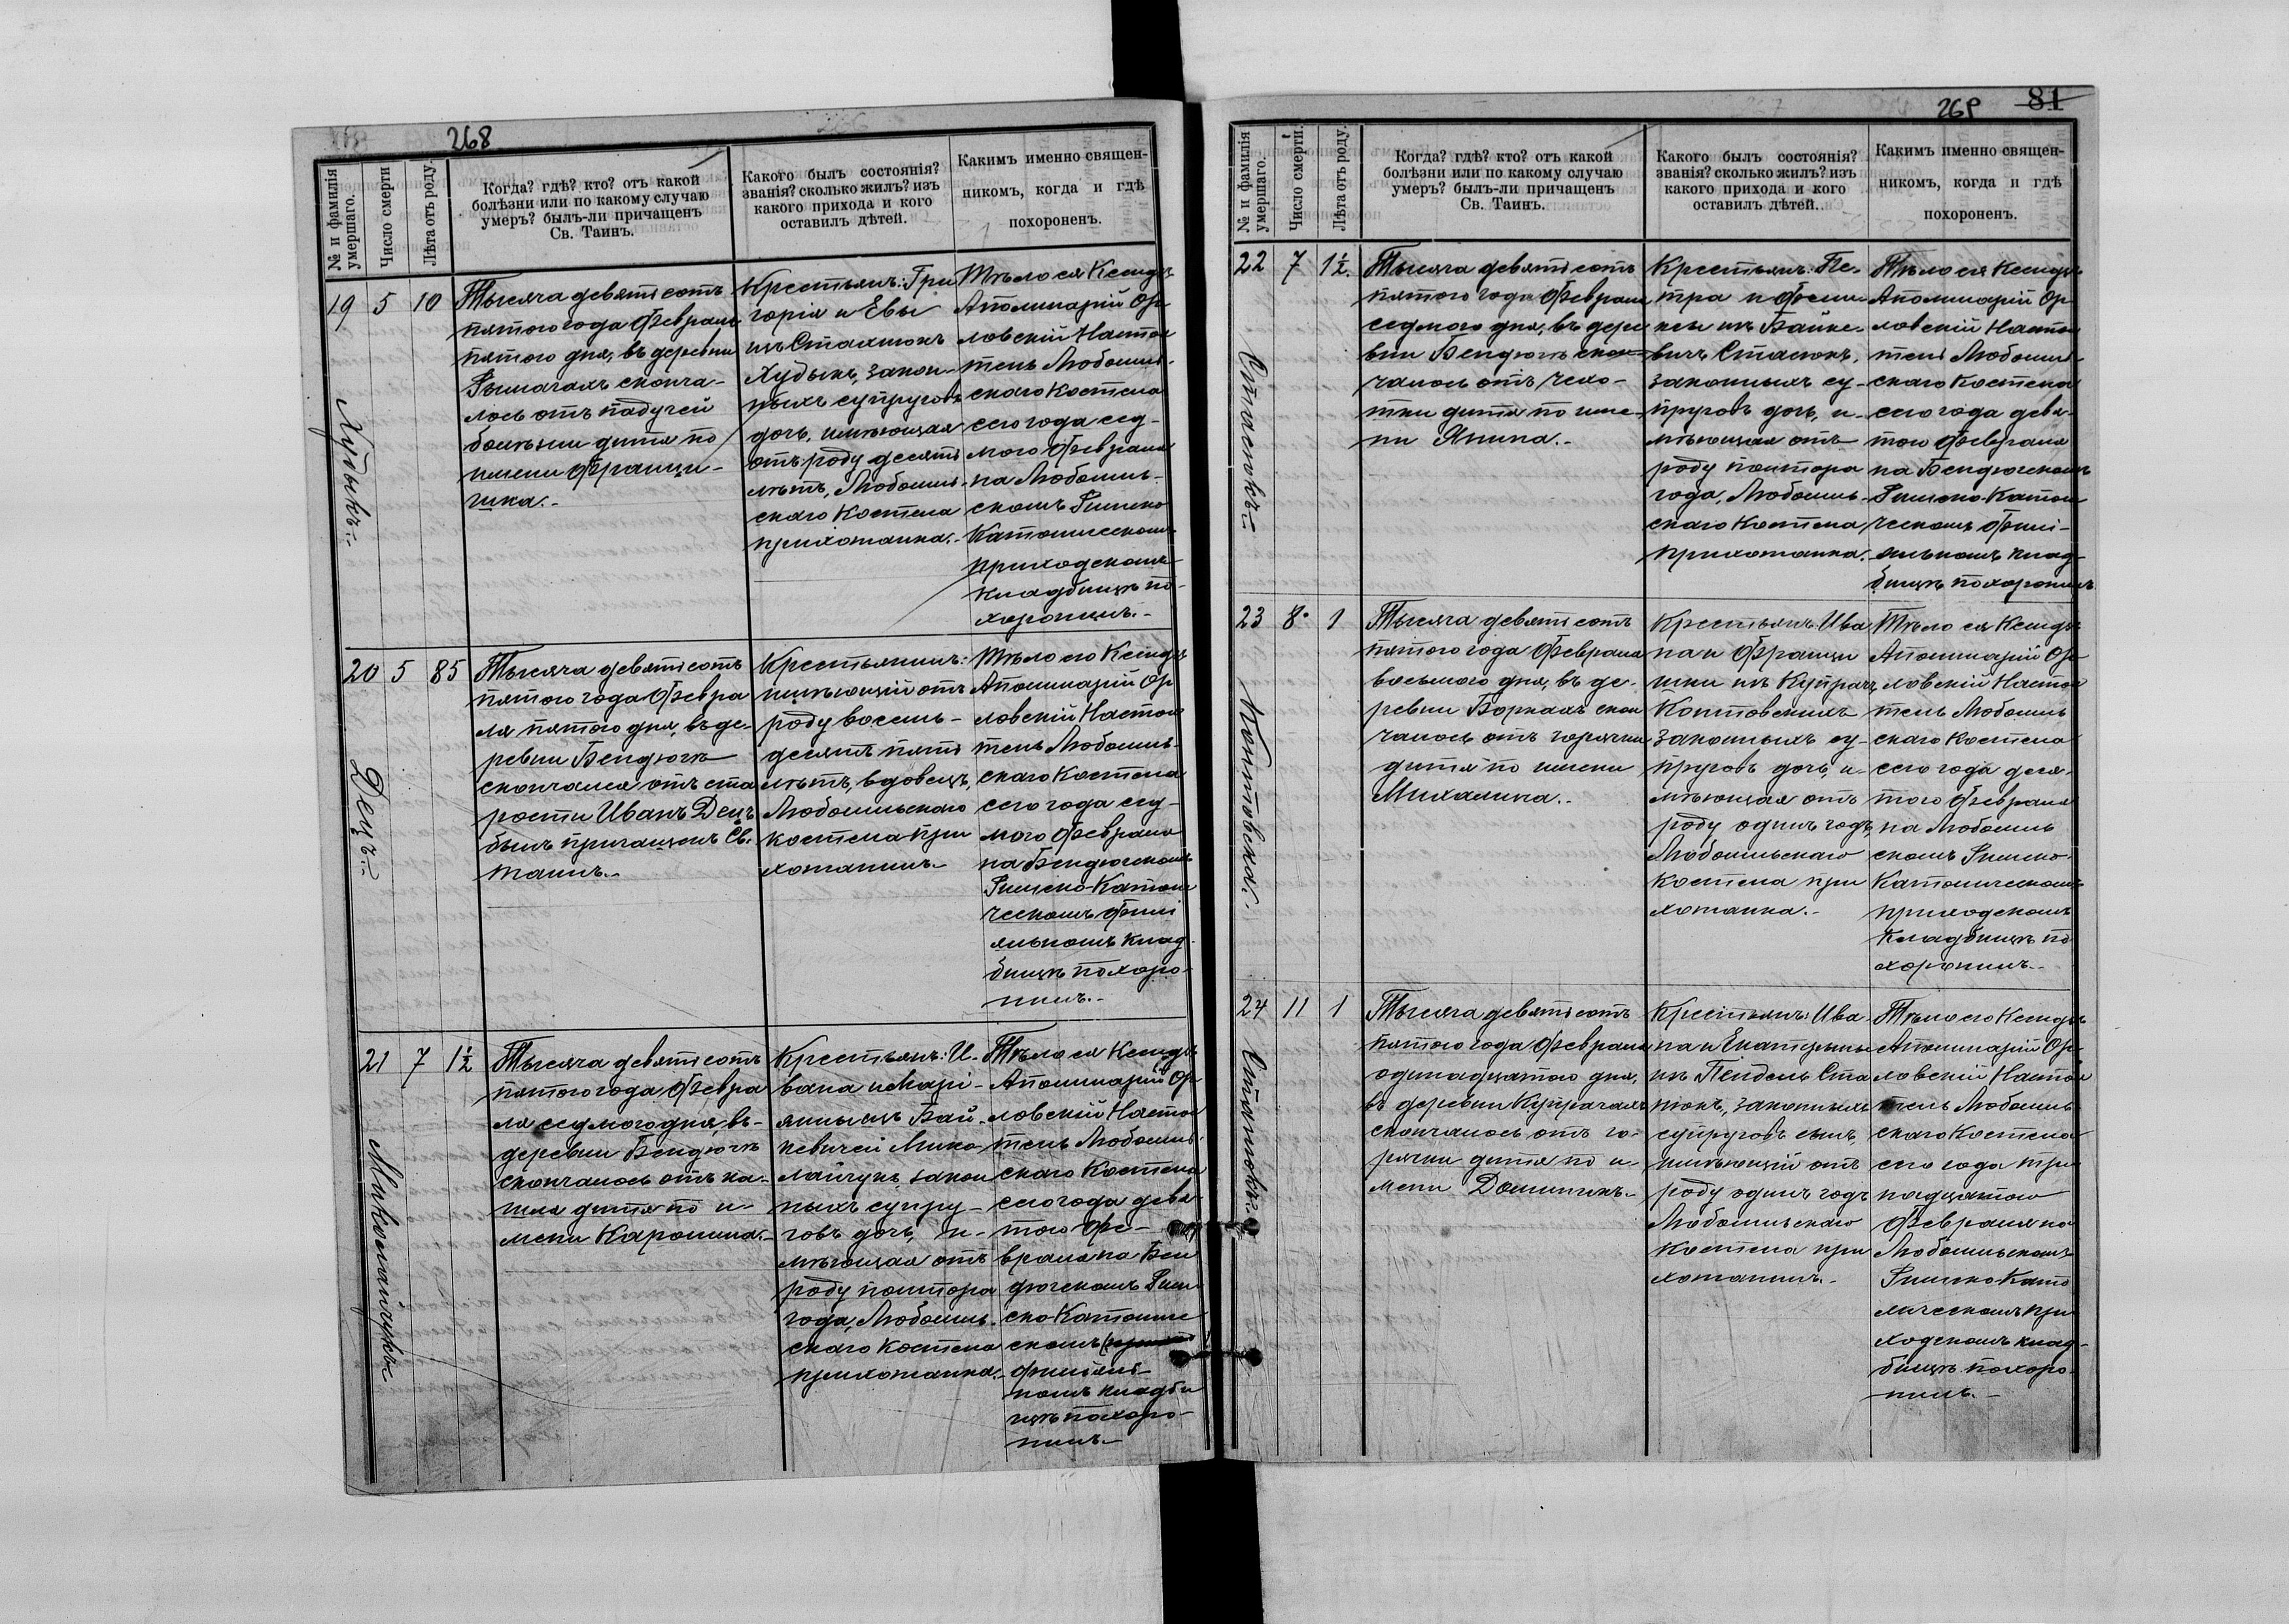 268
№ и фамилія умершаго.
Число смерти
Лѣта отъ роду.
Когда? гдѣ? кто? отъ какой
болѣзни или по какому случаю
умеръ? былъ-ли причащенъ
Св. Таинъ.
Какого былъ состоянія?
званія? сколько жилъ? изъ
какого прихода и кого
оставилъ дѣтей.
Какимъ именно священ-
никомъ, когда и гдѣ
похороненъ.
19 5 10
Худыкъ.-
Тысяча девятьсотъ
пятого года Февраля
пятого дня, въ деревни
Рымачахъ сконча-
лось отъ падучей
болѣзни дитя по
имени Франци-
шка.-
Крестьянъ: Гри
горія и Евы
изъ Стахнюкъ
Худыкъ, закон-
ныхъ супруговъ
дочь, имѣющая
отъ роду десять
лѣтъ, Любомль-
скаго Костела
прихожанка.-
Тѣло ея Ксендзъ
Аполинарій Ор
ловскій Настоя
тель Любомль-
скаго Костела
сего года сед-
мого Февраля
на Любомль-
скомъ Римско
Католическомъ
приходскомъ
кладбищѣ по-
хоронилъ.-
20 5 85
Децъ.-
Тысяча девятьсотъ
пятого года Февра
ля пятого дня, въ де-
ревни Бендюгѣ
скончался отъ ста
рости Иванъ Децъ
былъ причащенъ Св.
таинъ.-
Крестьянинъ:
имѣющій отъ
роду восемь-
десятъ пять
лѣтъ, вдовецъ,
Любомльскаго
костела при
хожанинъ.-
Тѣло его Ксендзъ
Аполинарій Ор
ловскій Настоя
тель Любомль-
скаго Костела
сего года сед-
мого Февраля
на Бендюгскомъ
Римско-Католи
ческомъ Филі
яльномъ клад
бищѣ похоро-
нилъ.-
21 7 1½
Миколайчукъ
Тысяча девятьсотъ
пятого года Февра
ля седмого дня, въ-
деревни Бендюгѣ
скончалось отъ ка-
шля дитя по и-
мени Каролина.-
Крестьянъ: И-
вана и Марі-
янны изъ Бай-
кевичей Мико
лайчукъ, закон
ныхъ супру-
говъ дочь, и-
мѣющая отъ
роду полтора
года, Любомль-
скаго Костела
прихожанка.-
Тѣло ея Ксендзъ
Аполинарій Ор
ловскій Настоя
тель Любомль-
скаго Костела
сего года девя-
того Фе-
враля на Бен
дюгскомъ Рим
ско-Католиче
скомъ
филіяль-
номъ кладби
щѣ похоро-
нилъ.-
269 81
№ и фамилія умершаго.
Число смерти.
Лѣта отъ роду.
Когда? гдѣ? кто? отъ какой
болѣзни или по какому случаю
умеръ? былъ-ли причащенъ
Св. Таинъ.
Какого былъ состоянія?
званія? сколько жилъ? изъ
какого прихода и кого
оставилъ дѣтей.
Какимъ именно священ-
никомъ, когда и гдѣ
похороненъ.
22 7 1½.
Стасюкъ.-
Тысяча девятьсотъ
пятого года Февраля
седмого дня, въ дере
вни Бендюгѣ скон-
чалось отъ чехо-
тки дитя по име-
ни Янина.-
Крестьянъ: Пе-
тра и Фели
ксы изъ Байке-
вичъ Стасюкъ,
законныхъ су-
пруговъ дочь, и-
мѣющая отъ
роду полтора
года, Любомль-
скаго Костела
прихожанка.
Тѣло ея Ксендзъ
Аполинарій Ор
ловскій Настоя
тель Любомль-
скаго Костела
сего года девя-
того Февраля
на Бендюгскомъ
Римско-Католи
ческомъ Филі-
яльномъ клад-
бищѣ похоронилъ
23 8. 1
Колтовска.-
Тысяча девятьсотъ
пятого года Февраля
восьмого дня, въ де-
ревни Боркахъ скон
чалось отъ горячки
дитя по имени
Михалина.-
Крестьянъ: Ива
на и Францы
шки изъ Купрачъ
Колтовскихъ
законныхъ су-
пруговъ дочь, и-
мѣющая отъ
роду одинъ годъ,
Любомльскаго
Костела при
хожанка.-
Тѣло ея Ксендзъ
Аполинарій Ор-
ловскій Настоя
тель Любомль
скаго Костела
сего года деся-
того Февраля
на Любомль
скомъ Римско-
Католическомъ
приходскомъ
кладбищѣ по
хоронилъ.-
24 11 1
Станюкъ.-
Тысяча девятьсотъ
пятого года Февраля
одинадцатого дня,
въ деревни Купрачахъ
скончалось отъ го-
рячки дитя по и-
мени Доминикъ.-
Крестьянъ: Ива
на и Екатерины
изъ Пендель Ста
нюкъ, законныхъ
супруговъ сынъ,
имѣющій отъ
роду одинъ годъ
Любомльскаго
Костела при
хожанинъ.-
Тѣло его Ксендзъ
Аполинарій Ор-
ловскій Настоя
тель Любомль
скаго Костела
сего года три
надцатого
Февраля на
Любомльскомъ
Римско-Като
лическомъ при
ходскомъ клад-
бищѣ похоро
нилъ.-